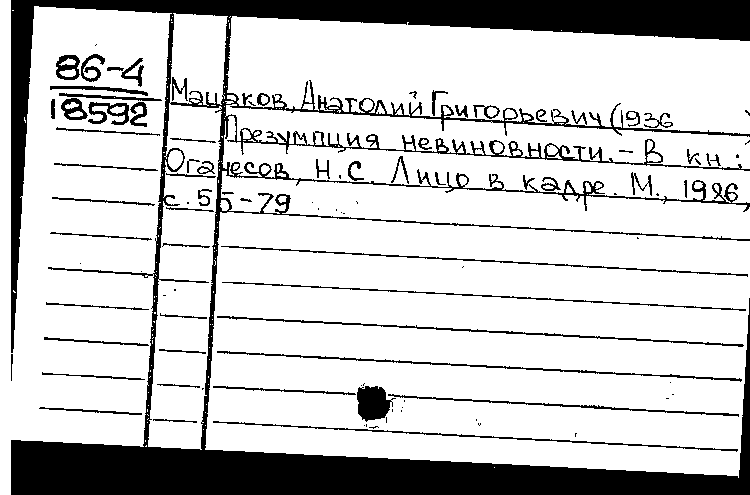 86-4
18592
Мацаков, Анатолий Григорьевич (1936 )
Презумпция невиновности. - В кн.:
Оганесов, Н.С. Лицо в кадре. М., 1986,
с. 55-79